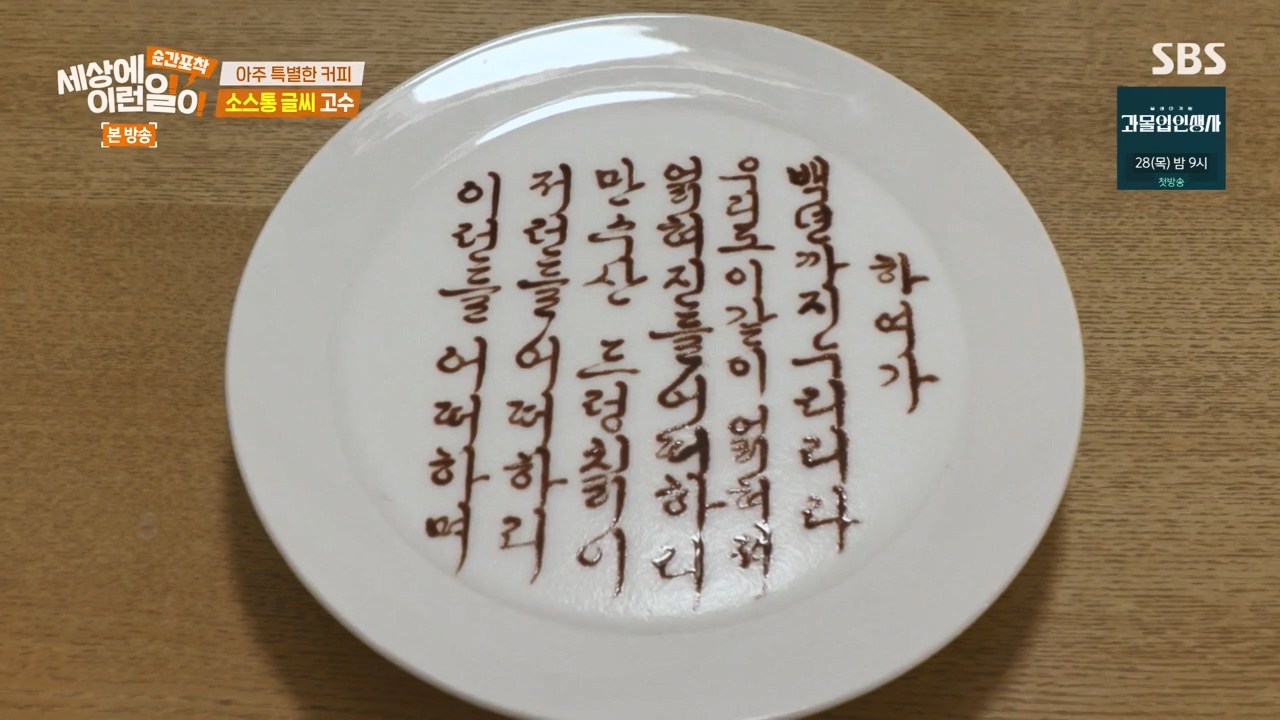 순간포착
세상에
이런일이
본 방송
아주 특별한 커피
소스통 글씨 고수
SBS
과몰입인생사
28(목) 밤 9시
첫방송
하여가
이런들 어떠하며
저런들 어떠하리
만수산 드렁칡이
얽혀진들 어떠하니
우리도 이같이 얽혀져
백년까지 누리리라